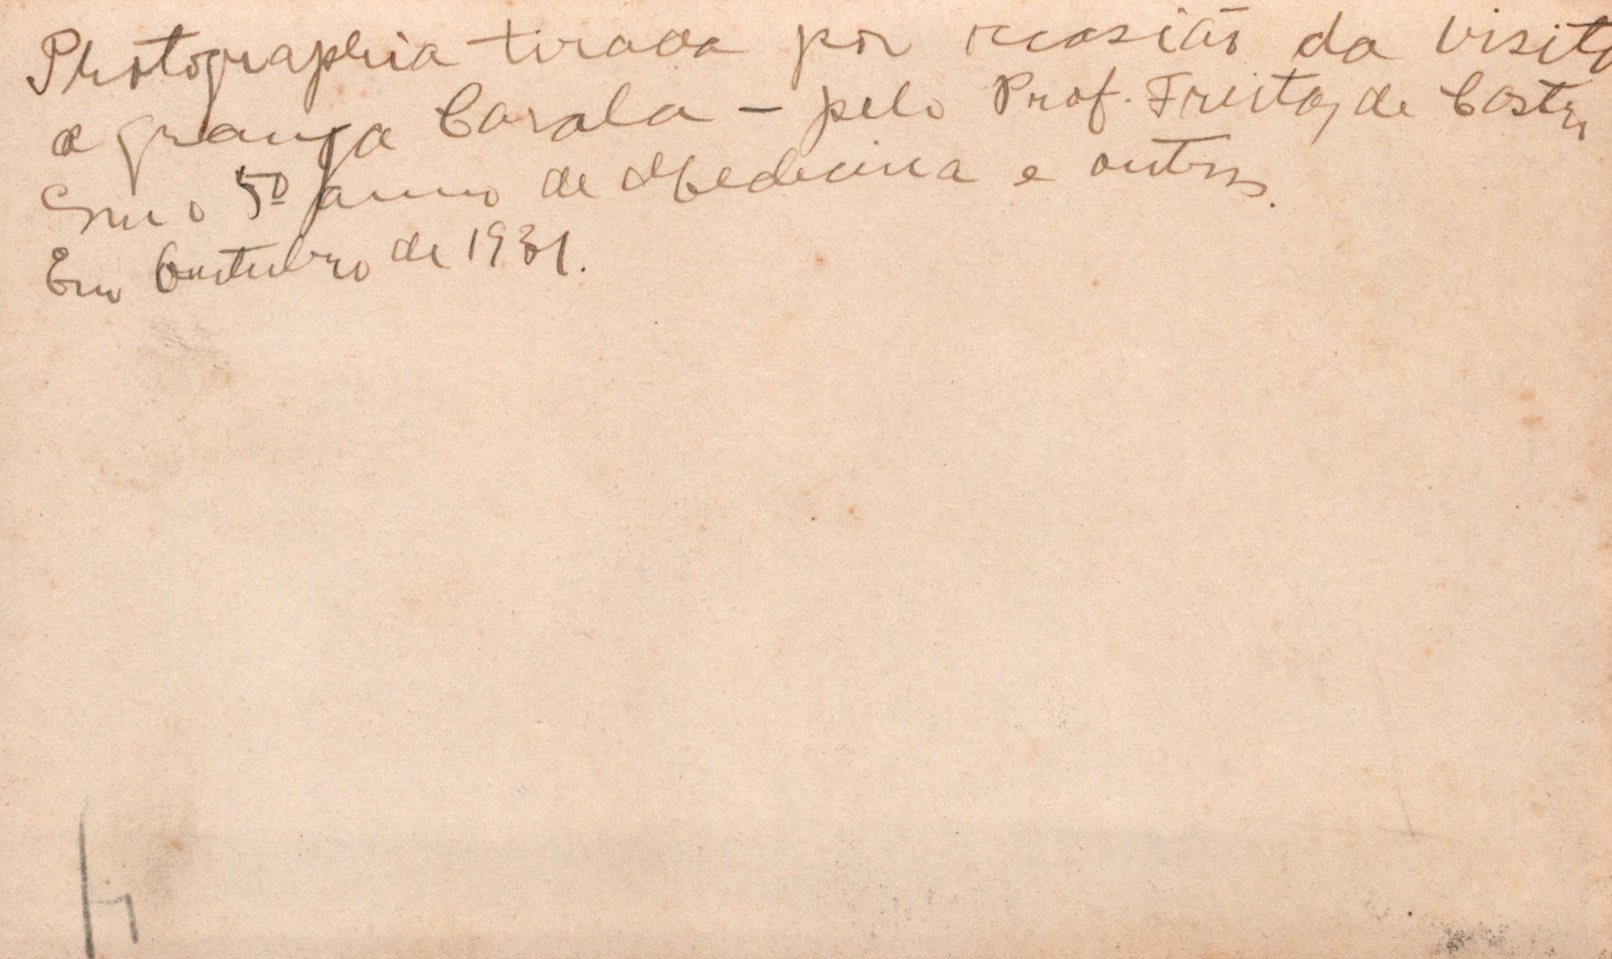 Photographia tirada por occasião da visita
a granja Carola – pelo Prof. Freitas de Castro
com o 5º anno de Medicina e outros.
Em Outubro de 1931.